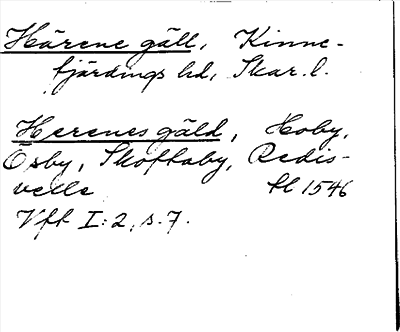 Härene gäll, Kinne-
fjärdings hd, Skar. l.
Herenes gäld, Hoby,
Osby, Skofftaby, Redis-
velle fl 1546
Vft I:2, s. 7.